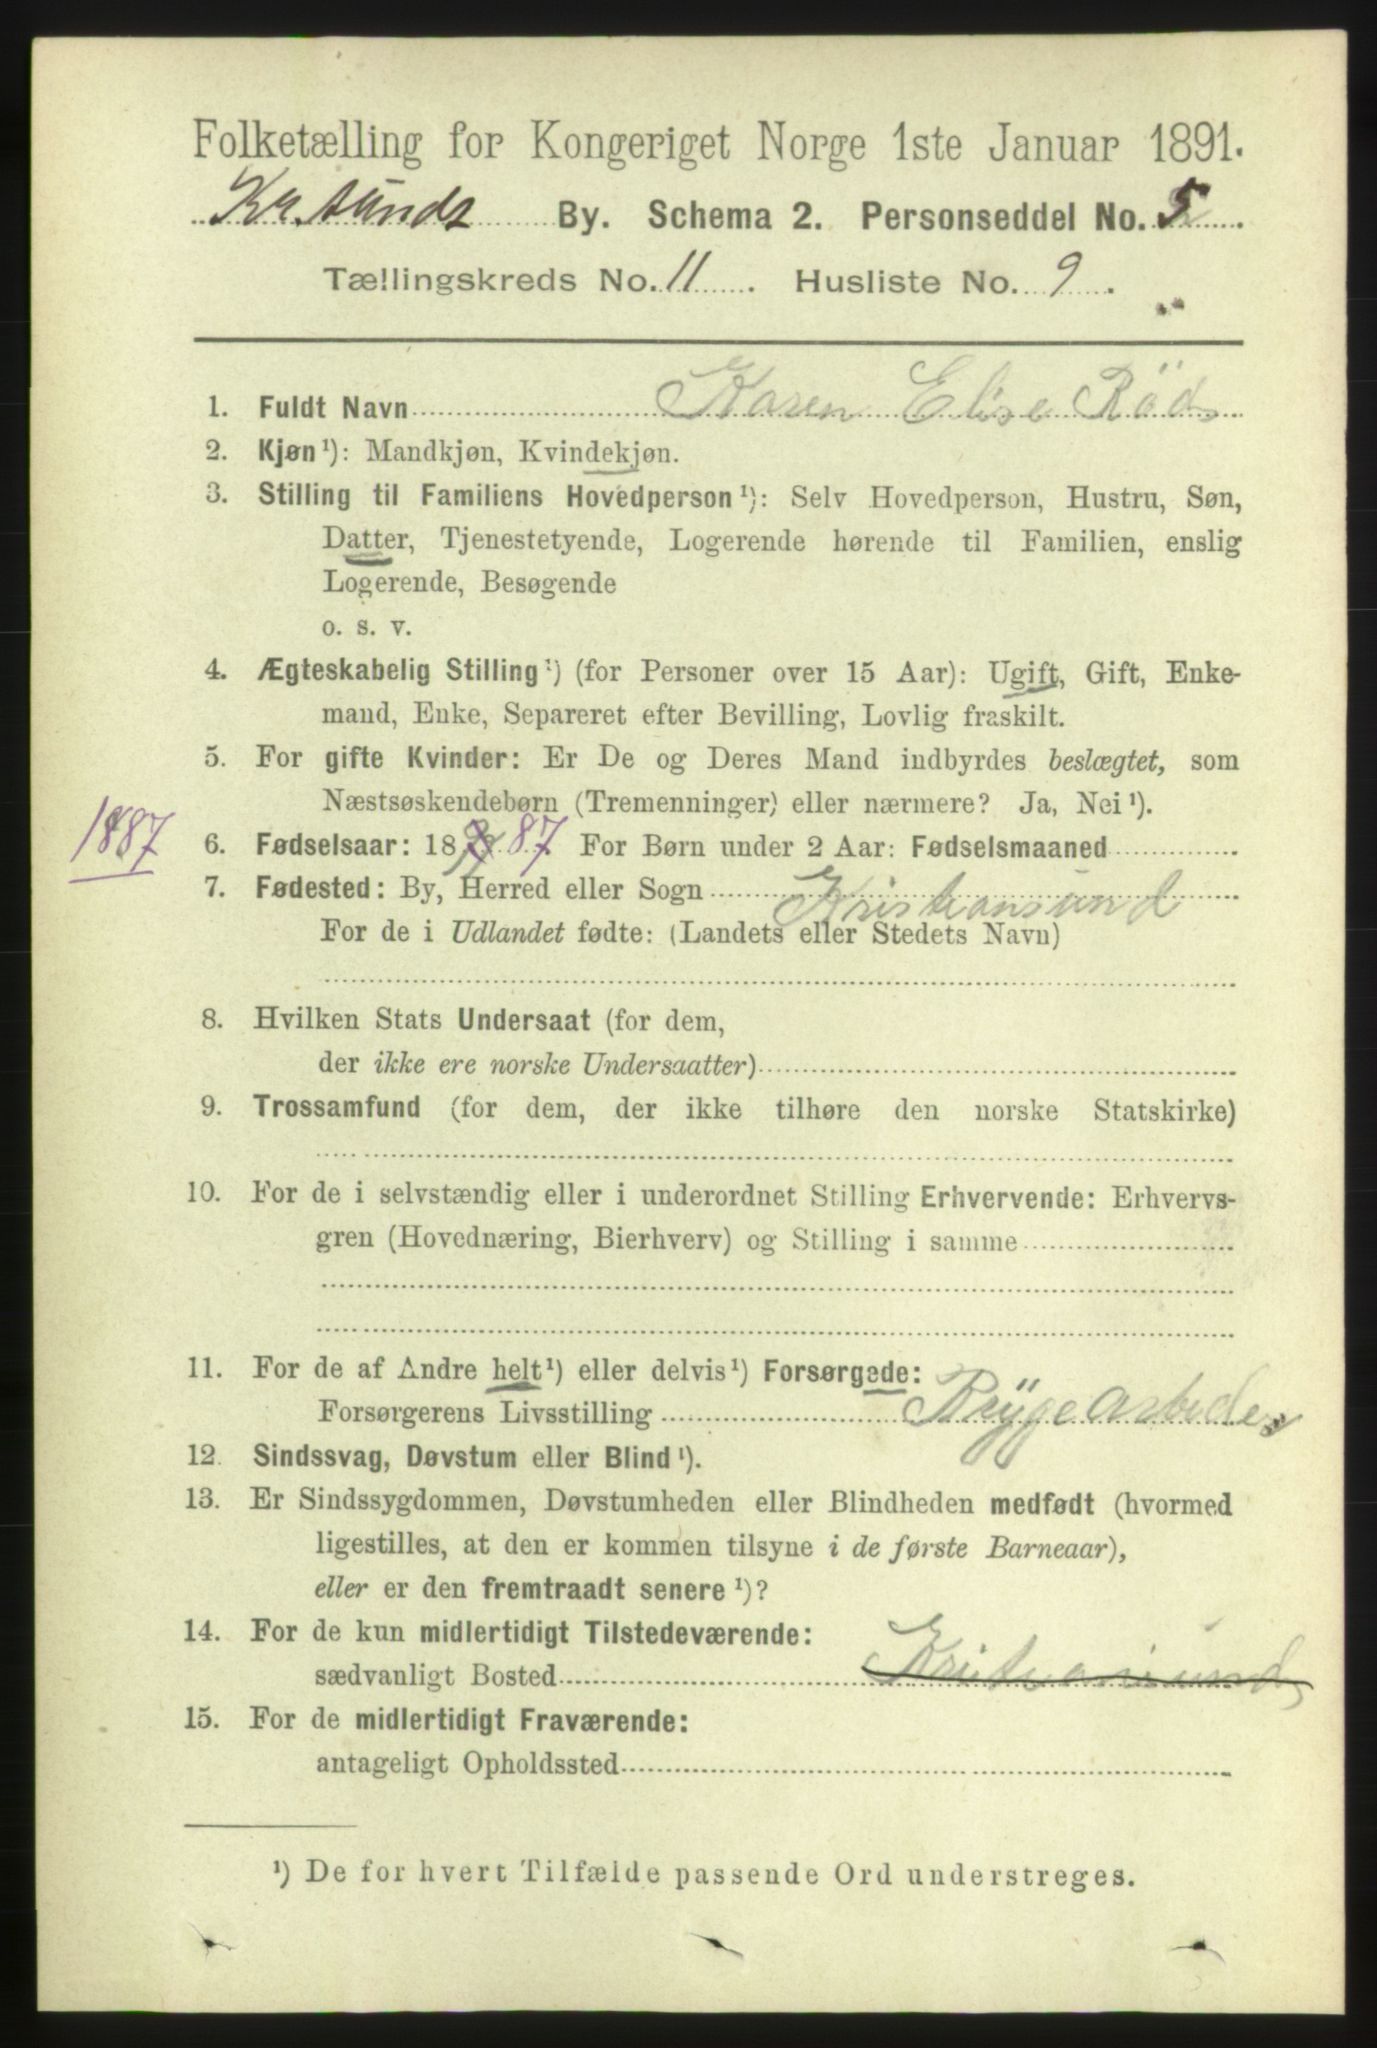 Folketælling for Kongeriget Norge 1ste Januar 1891.
Kr.sunds By. Schema 2. Personseddel No. 5.
Tællingskreds No. 11. Husliste No. 9.
1. Fuldt Navn Karen Elise Röd
2. Kjøn¹): Mandkjøn, Kvindekjøn.
3. Stilling til Familiens Hovedperson¹): Selv Hovedperson, Hustru, Søn,
Datter, Tjenestetyende, Logerende hørende til Familien, enslig
Logerende, Besøgende
o. s. v.
4. Ægteskabelig Stilling¹) (for Personer over 15 Aar): Ugift, Gift, Enke-
mand, Enke, Separeret efter Bevilling, Lovlig fraskilt.
5. For gifte Kvinder: Er De og Deres Mand indbyrdes beslægtet, som
Næstsøskendebørn (Tremenninger) eller nærmere? Ja, Nei¹).
1887 6. Fødselsaar: 18 87. For Børn under 2 Aar: Fødselsmaaned
7. Fødested: By, Herred eller Sogn Kristiansund
For de i Udlandet fødte: (Landets eller Stedets Navn)
8. Hvilken Stats Undersaat (for dem,
der ikke ere norske Undersaatter)
9. Trossamfund (for dem, der ikke tilhøre den norske Statskirke)
10. For de i selvstændig eller i underordnet Stilling Erhvervende: Erhvervs-
gren (Hovednæring, Bierhverv) og Stilling i samme
11. For de af Andre helt¹) eller delvis¹) Forsørgede:
Forsørgerens Livsstilling Bryggearbeider
12. Sindssvag, Døvstum eller Blind¹).
13. Er Sindssygdommen, Døvstumheden eller Blindheden medfødt (hvormed
ligestilles, at den er kommen tilsyne i de første Barneaar),
eller er den fremtraadt senere¹)?
14. For de kun midlertidigt Tilstedeværende:
sædvanligt Bosted Kristiansund
15. For de midlertidigt Fraværende:
antageligt Opholdssted
¹) De for hvert Tilfælde passende Ord understreges.